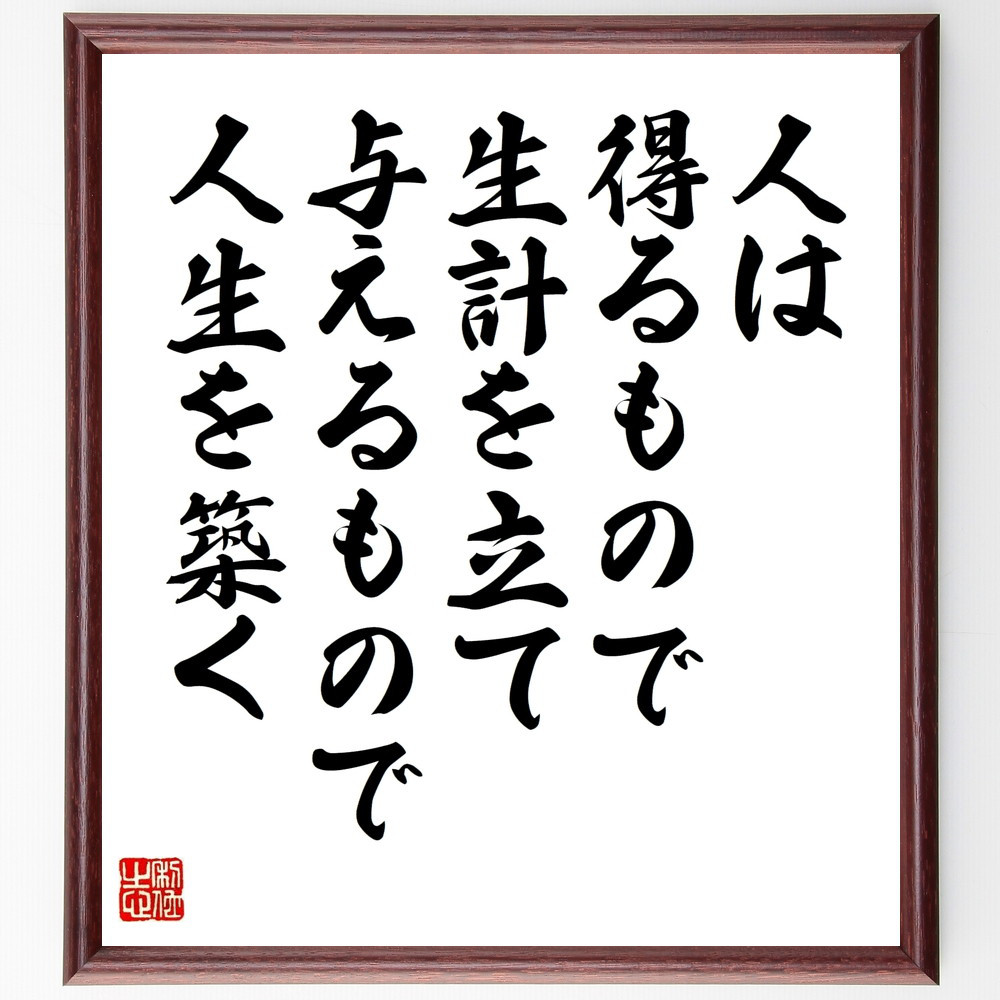 人は
得るもので
生計を立て
与えるもので
人生を築く